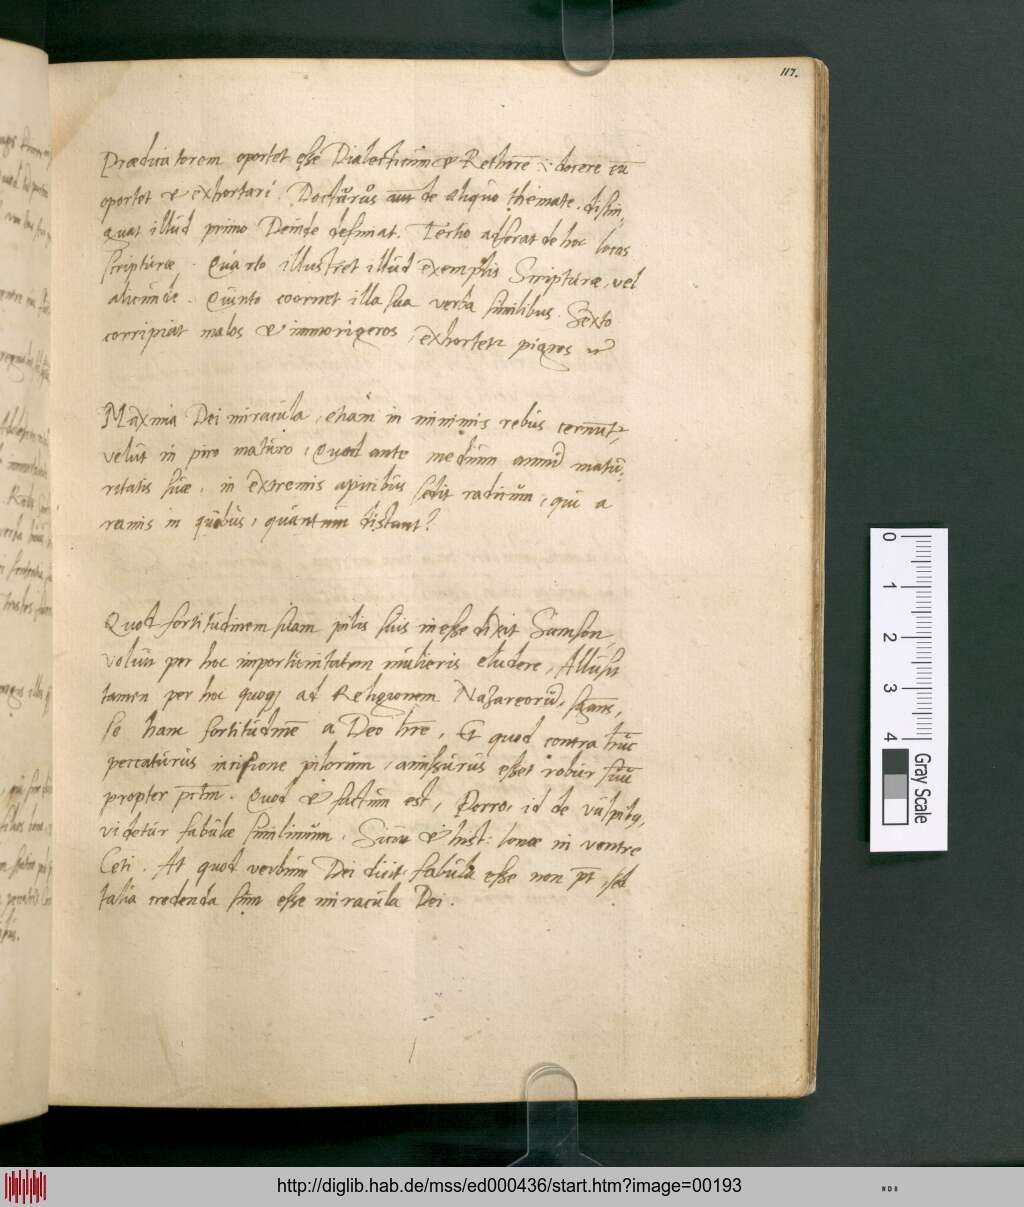 117.
Prædicatorem oportet esse Dialecticum et Rethorē: docere eū
oportet et exhortari. Docturus aut de aliquo themate. distin,
guat illud primo Deinde definiat. Tertio adferat de hoc locos
scripturæ. Quarto illustret illud exemplis Scripturæ, vel
aliunde. Quinto coornet illa sua verba similibus. Sexto
corripiat malos et immorigeros, exhortetur pigros
Maxima Dei miracula, etiam in minimis rebus cernunt2,
velut in piro maturo, Quod ante medium annū matu,
ritatis suæ, in extremis apicibus radicum, qui a
ramis in quibus, quantum distant?
Quod fortitudinem suam pilis suis inesse dixit Samson,
voluit per hoc importunitatem mulieris eludere, Allusit
tamen per hoc quoqz ad Religionem Nazareorū,
se hanc fortitudinē a Deo hre, Et quod contra hūc
peccaturus incisione pilorum, amissurus esset robur suū
propter pctm. Quod et factum est, Porro, id de vulpibq,
videtur fabulæ similimum. Sicut et hist: Ionæ in ventre
Ceti. At quod verbum Dei dicit fabula esse non pt, sed
talia credenda sunt esse miracula Dei.
0
1
2
3
4
Gray Scale
http://diglib.hab.de/mss/ed000436/start.htm?image=00193